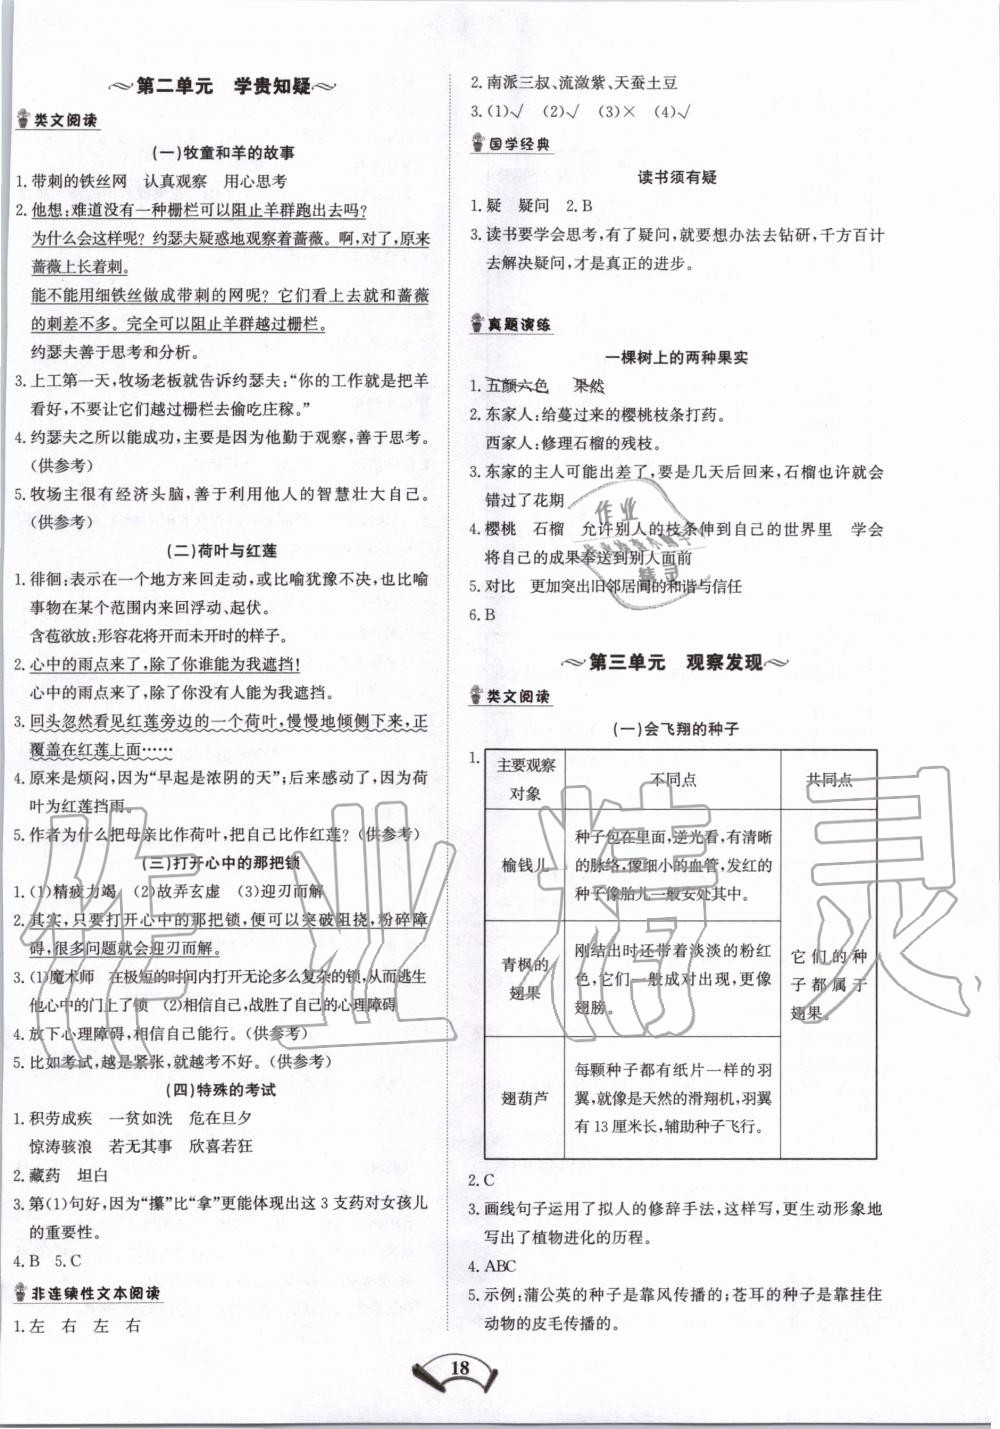 第二单元 学贵知疑
类文阅读
(一)牧童和羊的故事
1. 带刺的铁丝网 认真观察 用心思考
2. 他想:难道没有一种栅栏可以阻止羊群跑出去吗?
为什么会这样呢? 约瑟夫疑惑地观察着蔷薇。啊,对了,原来
蔷薇上长着刺。
能不能用细铁丝做成带刺的网呢? 它们看上去就和蔷薇
的刺差不多。完全可以阻止羊群越过栅栏。
约瑟夫善于思考和分析。
3. 上工第一天,牧场老板就告诉约瑟夫:“你的工作就是把羊
看好,不要让它们越过栅栏去偷吃庄稼。”
4. 约瑟夫之所以能成功,主要是因为他勤于观察,善于思考。
(供参考)
5. 牧场主很有经济头脑,善于利用他人的智慧壮大自己。
(供参考)
(二)荷叶与红莲
1. 徘徊:表示在一个地方来回走动,或比喻犹豫不决,也比喻
事物在某个范围内来回浮动、起伏。
含苞欲放:形容花将开而未开时的样子。
2. 心中的雨点来了,除了你谁能为我遮挡!
心中的雨点来了,除了你没有人能为我遮挡。
3. 回头忽然看见红莲旁边的一个荷叶,慢慢地倾侧下来,正
覆盖在红莲上面……
4. 原来是烦闷,因为“早起是浓阴的天”;后来感动了,因为荷
叶为红莲挡雨。
5. 作者为什么把母亲比作荷叶,把自己比作红莲?(供参考)
(三)打开心中的那把锁
1. (1)精疲力竭 (2)故弄玄虚 (3)迎刃而解
2. 其实,只要打开心中的那把锁,便可以突破阻挠,粉碎障
碍,很多问题就会迎刃而解。
3. (1)魔术师 在极短的时间内打开无论多么复杂的锁,从而逃生
他心中的门上了锁 (2)相信自己,战胜了自己的心理障碍
4. 放下心理障碍,相信自己能行。(供参考)
5. 比如考试,越是紧张,就越考不好。(供参考)
(四)特殊的考试
1. 积劳成疾 一贫如洗 危在旦夕
惊涛骇浪 若无其事 欣喜若狂
2. 藏药 坦白
3. 第(1)句好,因为“攥”比“拿”更能体现出这 3 支药对女孩儿
的重要性。
4. B 5. C
非连续性文本阅读
1. 左 右 左 右
2. 南派三叔、流潋紫、天蚕土豆
3. (1)√ (2)√ (3)× (4)√
国学经典
读书须有疑
1. 疑 疑问 2. B
3. 读书要学会思考,有了疑问,就要想办法去钻研,千方百计
去解决疑问,才是真正的进步。
真题演练
一棵树上的两种果实
1. 五颜六色 果然
2. 东家人:给蔓过来的樱桃枝条打药。
西家人:修理石榴的残枝。
3. 东家的主人可能出差了,要是几天后回来,石榴也许就会
错过了花期
4. 樱桃 石榴 允许别人的枝条伸到自己的世界里 学会
将自己的成果奉送到别人面前
5. 对比 更加突出旧邻居间的和谐与信任
6. B
第三单元 观察发现
类文阅读
(一)会飞翔的种子
1.
主要观察对象 不同点 共同点
榆钱儿 种子包在里面,逆光看,有清晰
的脉络,像细小的血管,发红的
种子像胎儿一般安处其中。
青枫的翅果 刚结出时还带着淡淡的粉红
色,它们一般成对出现,更像
翅膀。
它们的种
子都属于
翅果。
翅葫芦 每颗种子都有纸片一样的羽
翼,就像是天然的滑翔机,羽翼
有 13 厘米长,辅助种子飞行。
2. C
3. 画线句子运用了拟人的修辞手法,这样写,更生动形象地
写出了植物进化的历程。
4. ABC
5. 示例:蒲公英的种子是靠风传播的;苍耳的种子是靠挂住
动物的皮毛传播的。
18
作业精灵